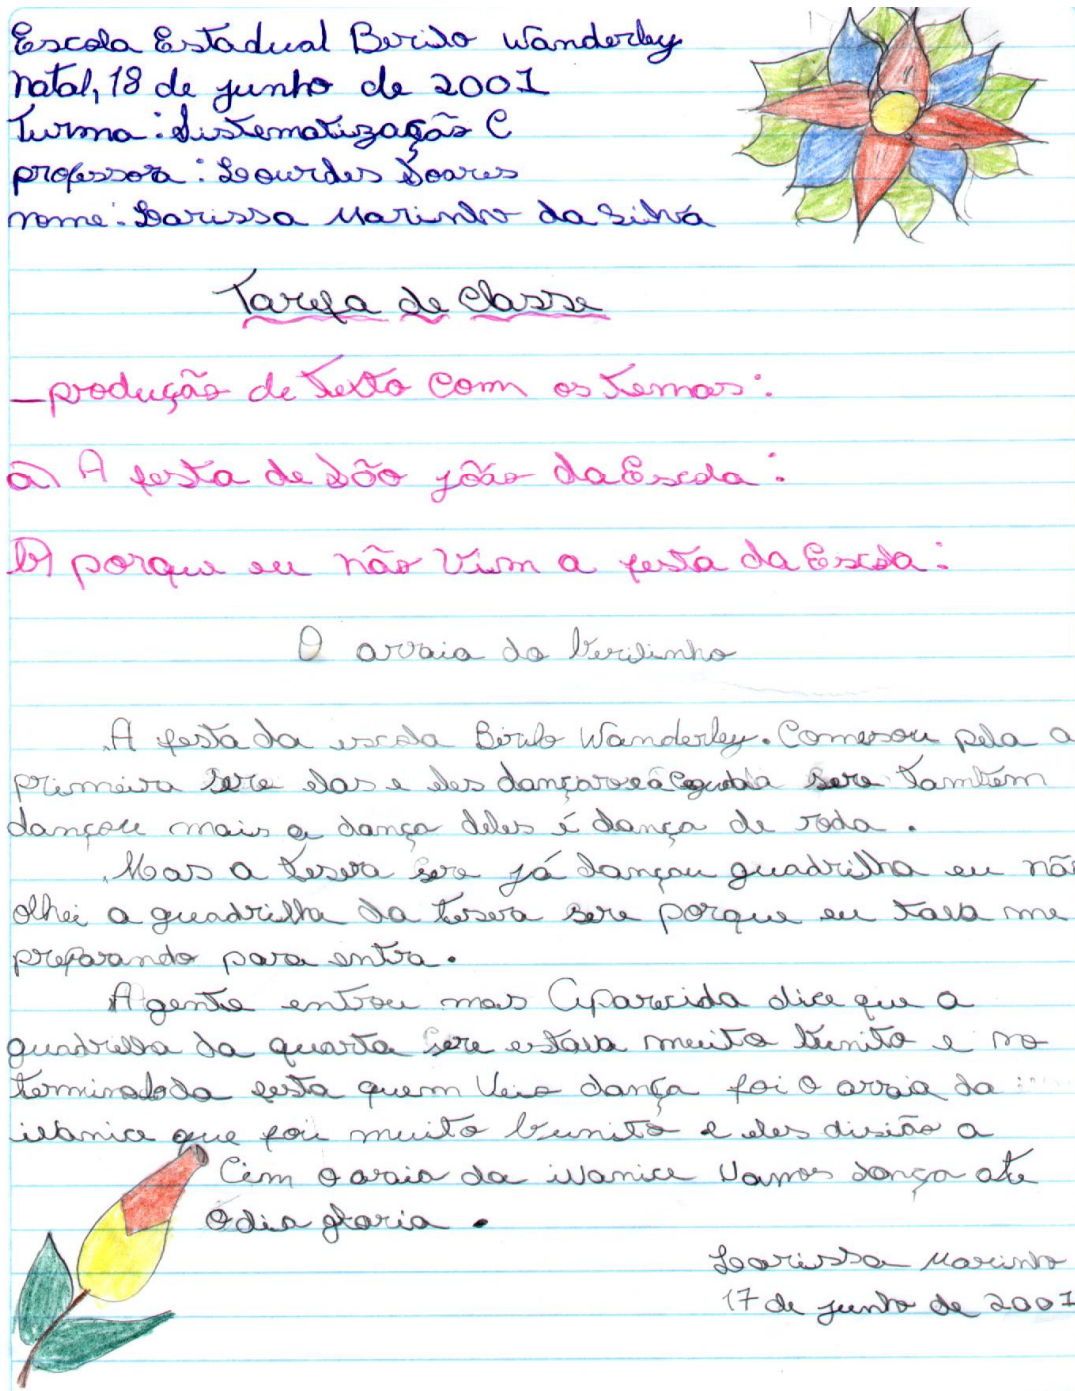 Escola Estadual Berilo Wanderley
Natal, 18 de junho de 2001
Turma: Sistematização C
professora: Lourdes Soares
nome: Larissa Marinho da Silva
Tarefa de Classe
_ produção de texto com os temas:
a) A festa de São joão da Escola:
b) porque eu não vim a festa da Escola:
O arraia do berilinho
A festa da escola Berilo Wanderley. Comesou pela a
primeira sere elas e eles dançaro e a segunda sere tambem
dançou mais a dança deles é dança de roda.
Mas a tesera sere já dançou quadrilha eu não
olhei a quadrilha da tesera sere porque eu tava me
preparando para entra.
A gente entrou mas Aparecida dice que a
quadrilha da quarta sere estava muito bunito e no
termino da festa quem veio dança foi o arraia da
ivanice que foi muito bunito e eles disião a
Cim o araia da ivanice vamos dança ate
o dia
Larissa Marinho
17 de junho de 2001